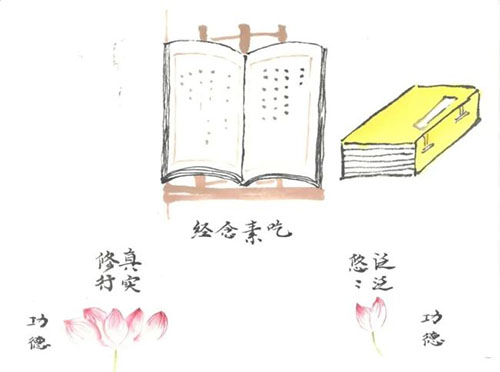 吃素念经
泛泛
悠〻
功德
真实
修行
功德